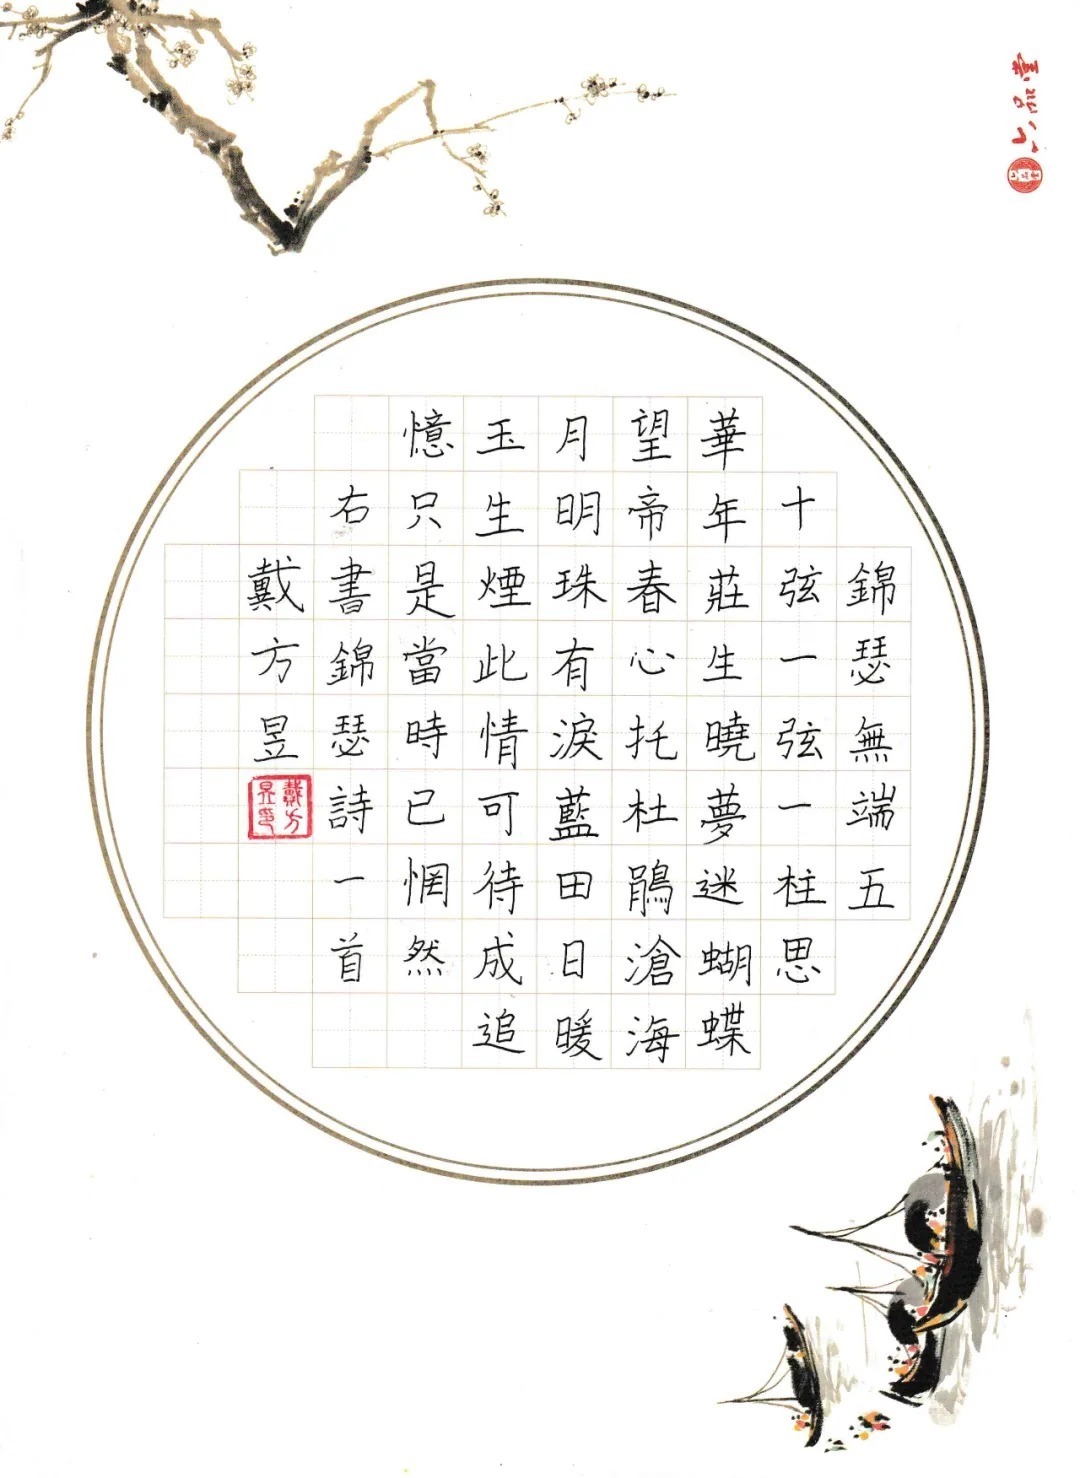 錦瑟無端五
十弦一弦一柱思
華年莊生曉夢迷蝴蝶
望帝春心托杜鵑滄海
月明珠有淚藍田日暖
玉生煙此情可待成追
憶只是當時已惘然
右書錦瑟詩一首
戴方昱
戴方
昱印
六品堂